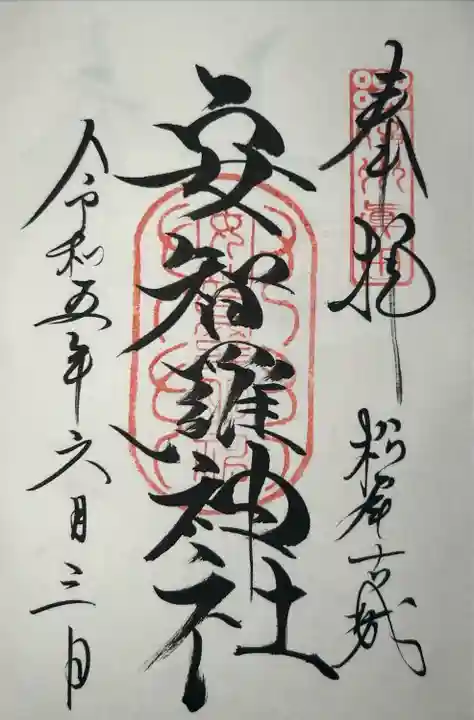 奉拝
松尾古城
安智羅神社
令和五年六月三日